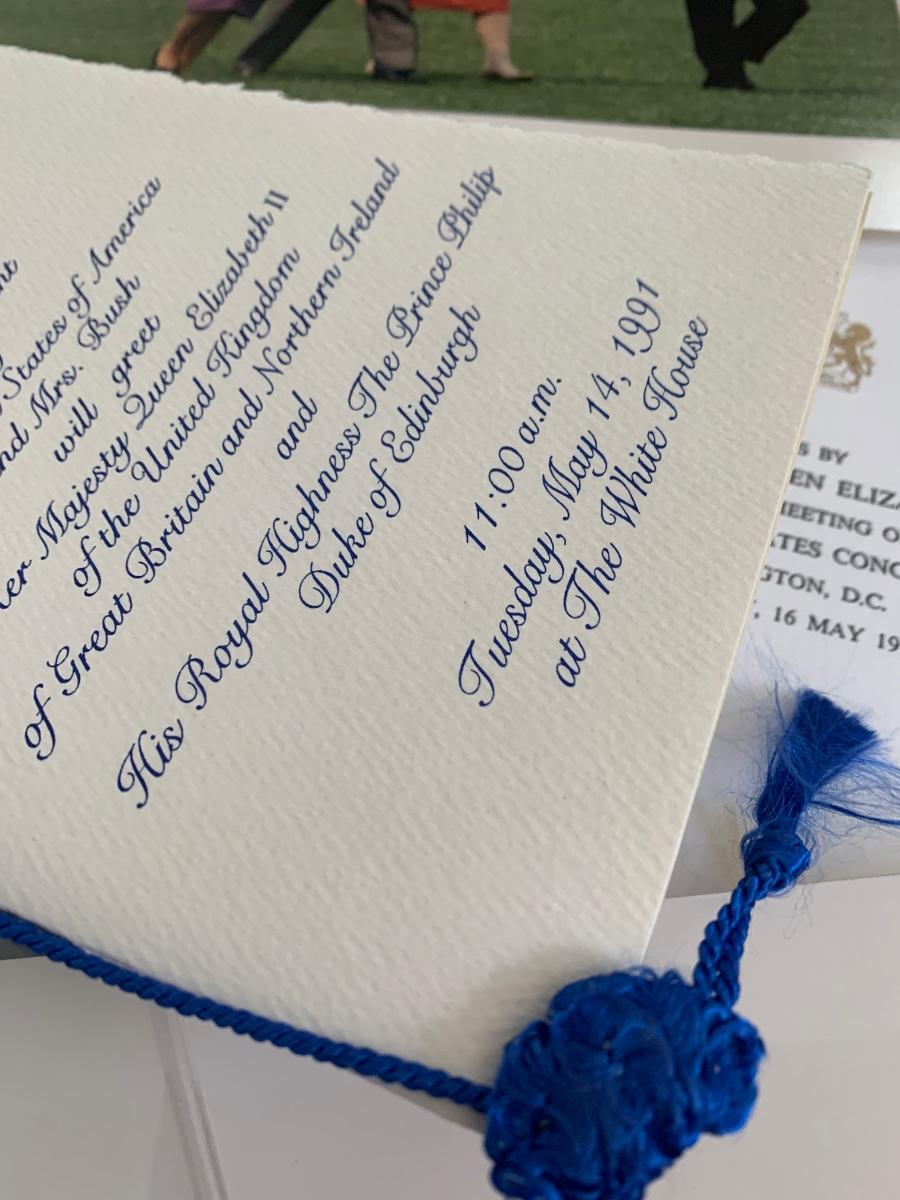 States of America
Mrs. Bush
will greet
Majesty Queen Elizabeth II
of the United Kingdom
of Great Britain and Northern Ireland
and
His Royal Highness The Prince Philip
Duke of Edinburgh
11:00 a.m.
Tuesday, May 14, 1991
at The White House
BY
D.C.
16 MAY